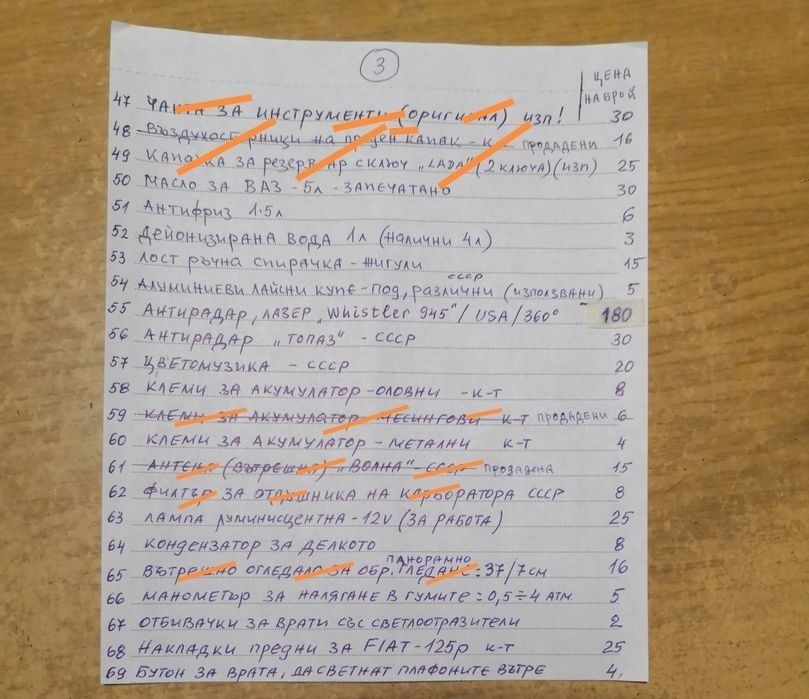 3
ЦЕНА
НА БРОЙ
47 ЧАНТА ЗА ИНСТРУМЕНТИ (ОРИГИНАЛ) ИЗП! 30
48 ВЪЗДУХОСБОРНИЦИ НА ПРЕДЕН КАПАК - К ПРОДАДЕНИ 16
49 КАПАЧКА ЗА РЕЗЕРВОАР С КЛЮЧ „LADA" (2 КЛЮЧА) (ИЗП) 25
50 МАСЛО ЗА ВАЗ - 5Л - ЗАПЕЧАТАНО 30
51 АНТИФРИЗ 1.5Л 6
52 ДЕЙОНИЗИРАНА ВОДА 1Л (НАЛИЧНИ 4Л) 3
53 ЛОСТ РЪЧНА СПИРАЧКА - ЖИГУЛИ 15
СССР
54 АЛУМИНИЕВИ ЛАЙСНИ КУПЕ - ПОД, РАЗЛИЧНИ (ИЗПОЛЗВАНИ) 5
55 АНТИРАДАР, ЛАЗЕР „Whistler 945"/ USA / 360° 180
56 АНТИРАДАР „ТОПАЗ" - СССР 30
57 ЦВЕТОМУЗИКА - СССР 20
58 КЛЕМИ ЗА АКУМУЛАТОР - ОЛОВНИ - К-Т 8
59 КЛЕМИ ЗА АКУМУЛАТОР МЕСИНГОВИ К-Т ПРОДАДЕНИ 6
60 КЛЕМИ ЗА АКУМУЛАТОР - МЕТАЛНИ К-Т 4
61 АНТЕНА (ВЪТРЕШНА) "ВОЛНА" СССР ПРОДАДЕНА 15
62 ФИЛТЪР ЗА ОТДУШНИКА НА КАРБОРАТОРА СССР 8
63 ЛАМПА ЛУМИНИСЦЕНТНА - 12V (ЗА РАБОТА) 25
64 КОНДЕНЗАТОР ЗА ДЕЛКОТО 8
ПАНОРАМНО
65 ВЪТРЕШНО ОГЛЕДАЛО ЗА ОБР. ГЛЕДАНЕ: 37/7СМ 16
66 МАНОМЕТЪР ЗА НАЛЯГАНЕ В ГУМИТЕ: 0,5÷4 АТМ. 5
67 ОТБИВАЧКИ ЗА ВРАТИ СЪС СВЕТЛООТРАЗИТЕЛИ 2
68 НАКЛАДКИ ПРЕДНИ ЗА FIAT-125p К-Т 25
69 БУТОН ЗА ВРАТА, ДА СВЕТНАТ ПЛАФОНИТЕ ВЪТРЕ 4